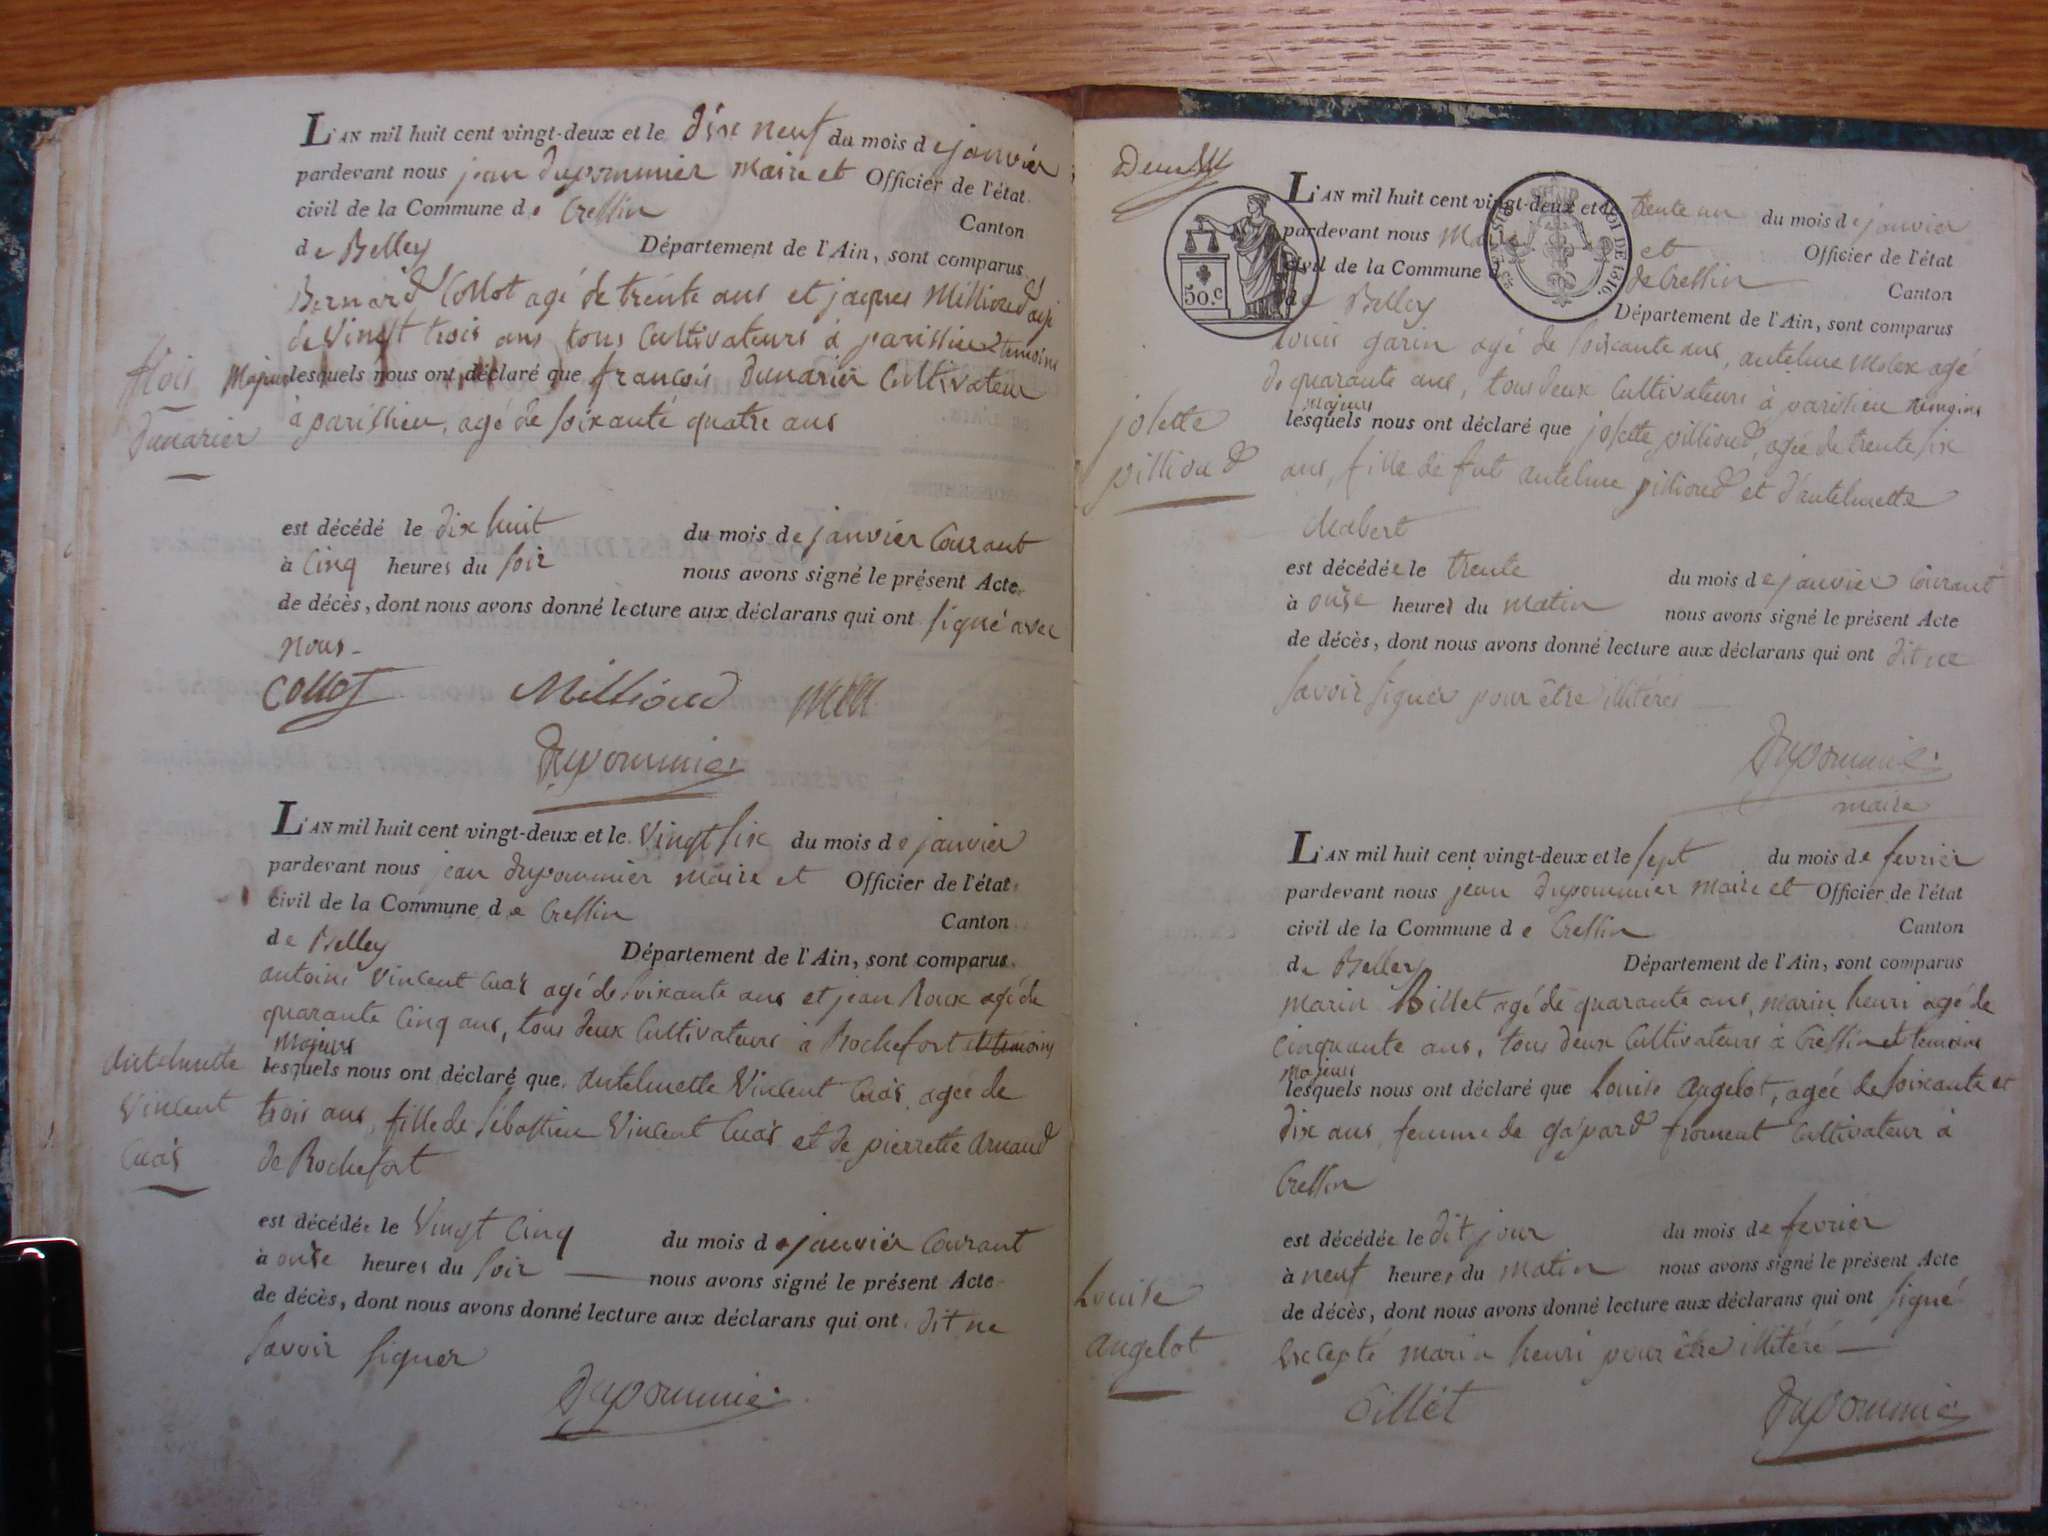 L'AN mil huit cent vingt-deux et le dix neuf du mois de janvier
pardevant nous jean dupommier maire et Officier de l'état
civil de la Commune de Cressin
Canton
de Belley Département de l'Ain, sont comparus
Bernard Collot agé de trente ans et jacques Millioud agé
de Vingt trois ans tous Cultivateurs à parissieu temoins
Majeurs lesquels nous ont déclaré que françois Dunarier Cultivateur
à parissieu, agé de soixante quatre ans
fcois
Dunarier
est décédé le dix huit du mois de janvier Courant
à Cinq heures du soir nous avons signé le présent Acte
de décès, dont nous avons donné lecture aux déclarans qui ont signé avec
nous.
Collot Millioud
Dupommier
L'AN mil huit cent vingt-deux et le Vingt six du mois de janvier
pardevant nous jean dupommier maire et Officier de l'état
civil de la Commune de Cressin Canton
de Belley Département de l'Ain, sont comparus
antoine Vincent Cuas agé de soixante ans et jean Roux agé de
quarante Cinq ans, tous deux Cultivateurs à Rochefort et temoins
Majeurs
lesquels nous ont déclaré que antelmette Vincent Cuas agée de
trois ans, fille de sébastien Vincent Cuas et de pierrette Arnaud
de Rochefort
Antelmette
Vincent
Cuas
est décédée le Vingt Cinq du mois de janvier Courant
à onse heures du soir nous avons signé le présent Acte
de décès, dont nous avons donné lecture aux déclarans qui ont dit ne
savoir signer
Dupommier
Deux
50 c
TIMBRE ROYAL
LOI DE 1816.
L'AN mil huit cent vingt-deux et le trente un du mois de janvier
pardevant nous Maire et Officier de l'état
civil de la Commune de Cressin Canton
de Belley Département de l'Ain, sont comparus
louis garin agé de soixante ans, antelme Molex agé
de quarante ans, tous deux Cultivateurs à parissieu temoins
majeurs
lesquels nous ont déclaré que josette pillioud, agée de trente six
ans, fille de fut antelme pillioud et d'antelmette
Mabert
josette
pillioud
est décédée le trente du mois de janvier courant
à onse heures du matin nous avons signé le présent Acte
de décès, dont nous avons donné lecture aux déclarans qui ont dit ne
savoir signer pour être illitérés
Dupommier
maire
L'AN mil huit cent vingt-deux et le sept du mois de fevrier
pardevant nous jean dupommier maire et Officier de l'état
civil de la Commune de Cressin Canton
de Belley Département de l'Ain, sont comparus
marin Billet agé de quarante ans, marin henri agé de
cinquante ans, tous deux Cultivateurs à Cressin et temoins
majeurs
lesquels nous ont déclaré que Louise Angelot, agée de soixante et
dix ans femme de gaspard froment Cultivateur à
Cressin
est décédée le dit jour du mois de fevrier
à neuf heures du matin nous avons signé le présent Acte
de décès, dont nous avons donné lecture aux déclarans qui ont signé
excepté marin henri pour être illitéré
Louise
angelot
Billet Dupommier